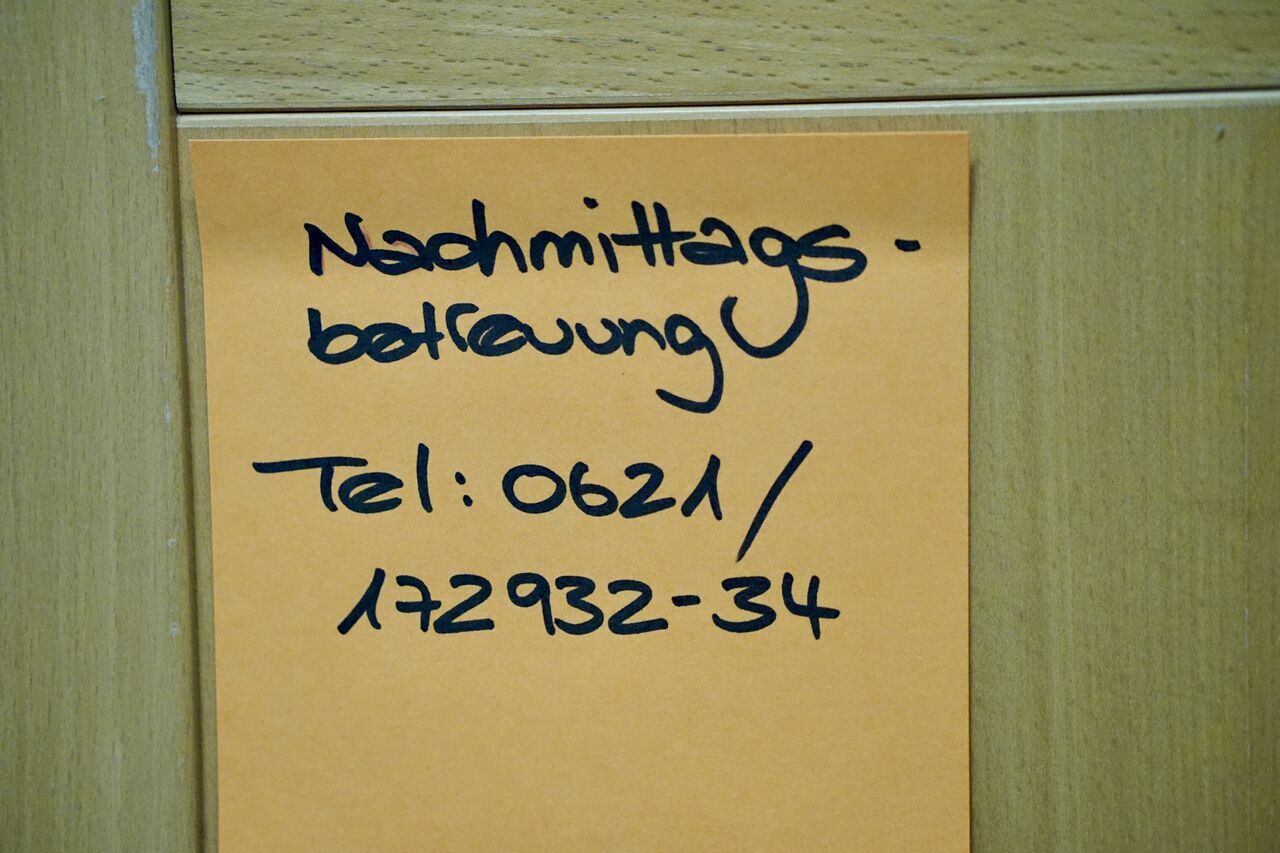 Nachmittags-
betreuung
Tel: 0621/
172932-34